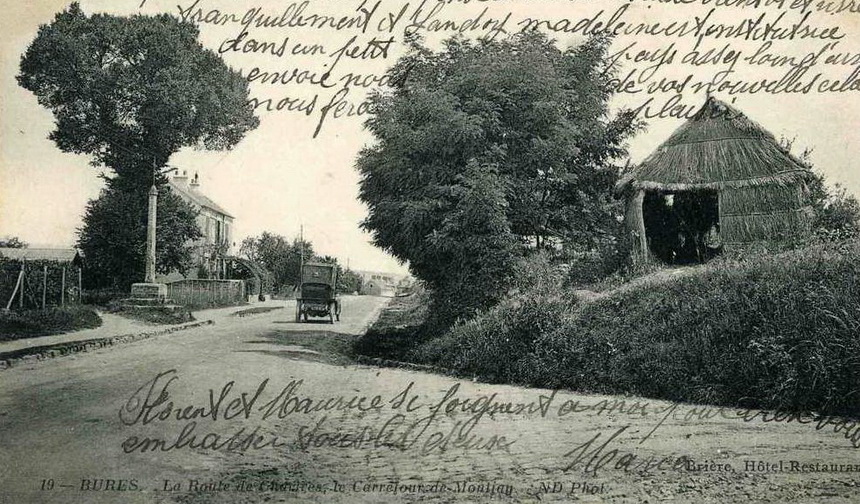 tranquillement et Sandos madeleine est institutrice
dans un petit pays assez loin d'
envoie nous de vos nouvelles cela
nous fera plaisir
Florent et Maurice se joignent a moi pour bien vous
embrasser tous les deux
Marcel
Brière, Hôtel-Restauran
19 — BURES. La Route de Chartres, le Carrefour de Montjay ND Phot.